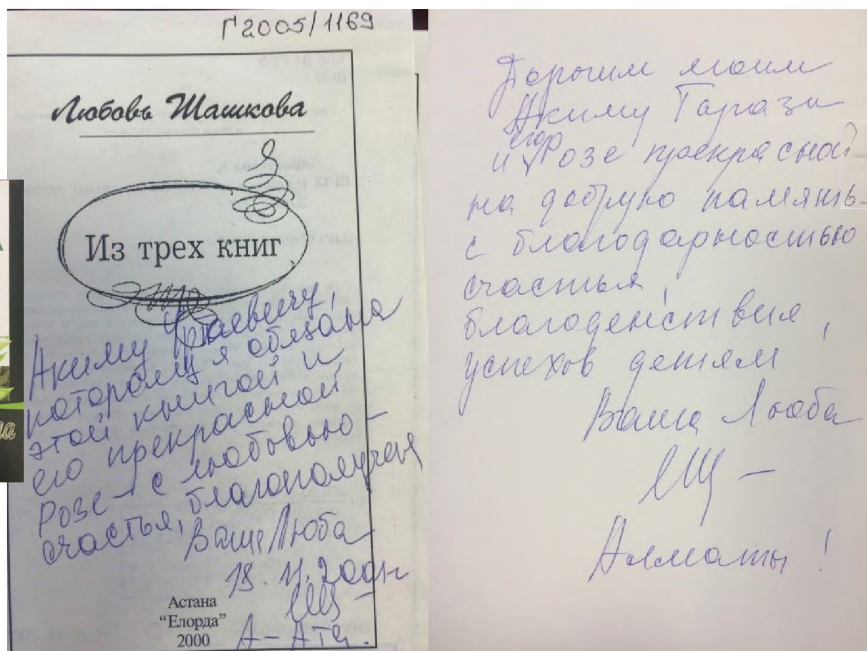 Г2005/1169
Любовь Шашкова
Из трех книг
Акиму Уртаевичу,
которому я обязана
этой книгой и
его прекрасной
Розе – с любовью –
счастья, благополучия
Ваша Люба
А-Ата.
Астана
"Елорда"
2000
Дорогим моим
Акиму Тарази
и его Розе прекрасной
на добрую память
с благодарностью
счастья,
благоденствия,
успехов детям
Ваша Люба
Алматы!